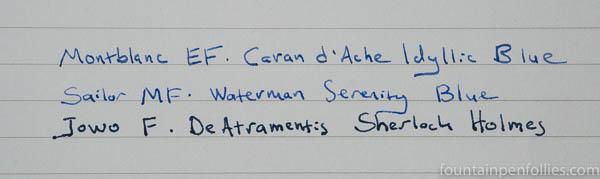 Montblanc EF. Caran d'Ache Idyllic Blue
Sailor MF. Waterman Serenity Blue
Jowo F. DeAtramentis Sherlock Holmes
fountainpenfollies.com